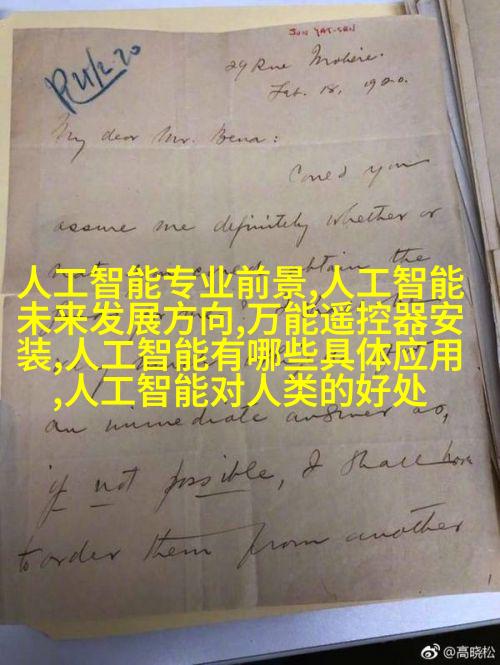 SUN YAT-SEN
R 21/2.20
29 Rue Molière.
Feb. 18, 1920.
My dear Mr. Bena:
Could you
assure me definitely whether or
obtain the
人工智能专业前景,人工智能
未来发展方向,万能遥控器安
装,人工智能有哪些具体应用
,人工智能对人类的好处
an immediate answer as,
if not possible, I shall have
to order them from another
@高晓松